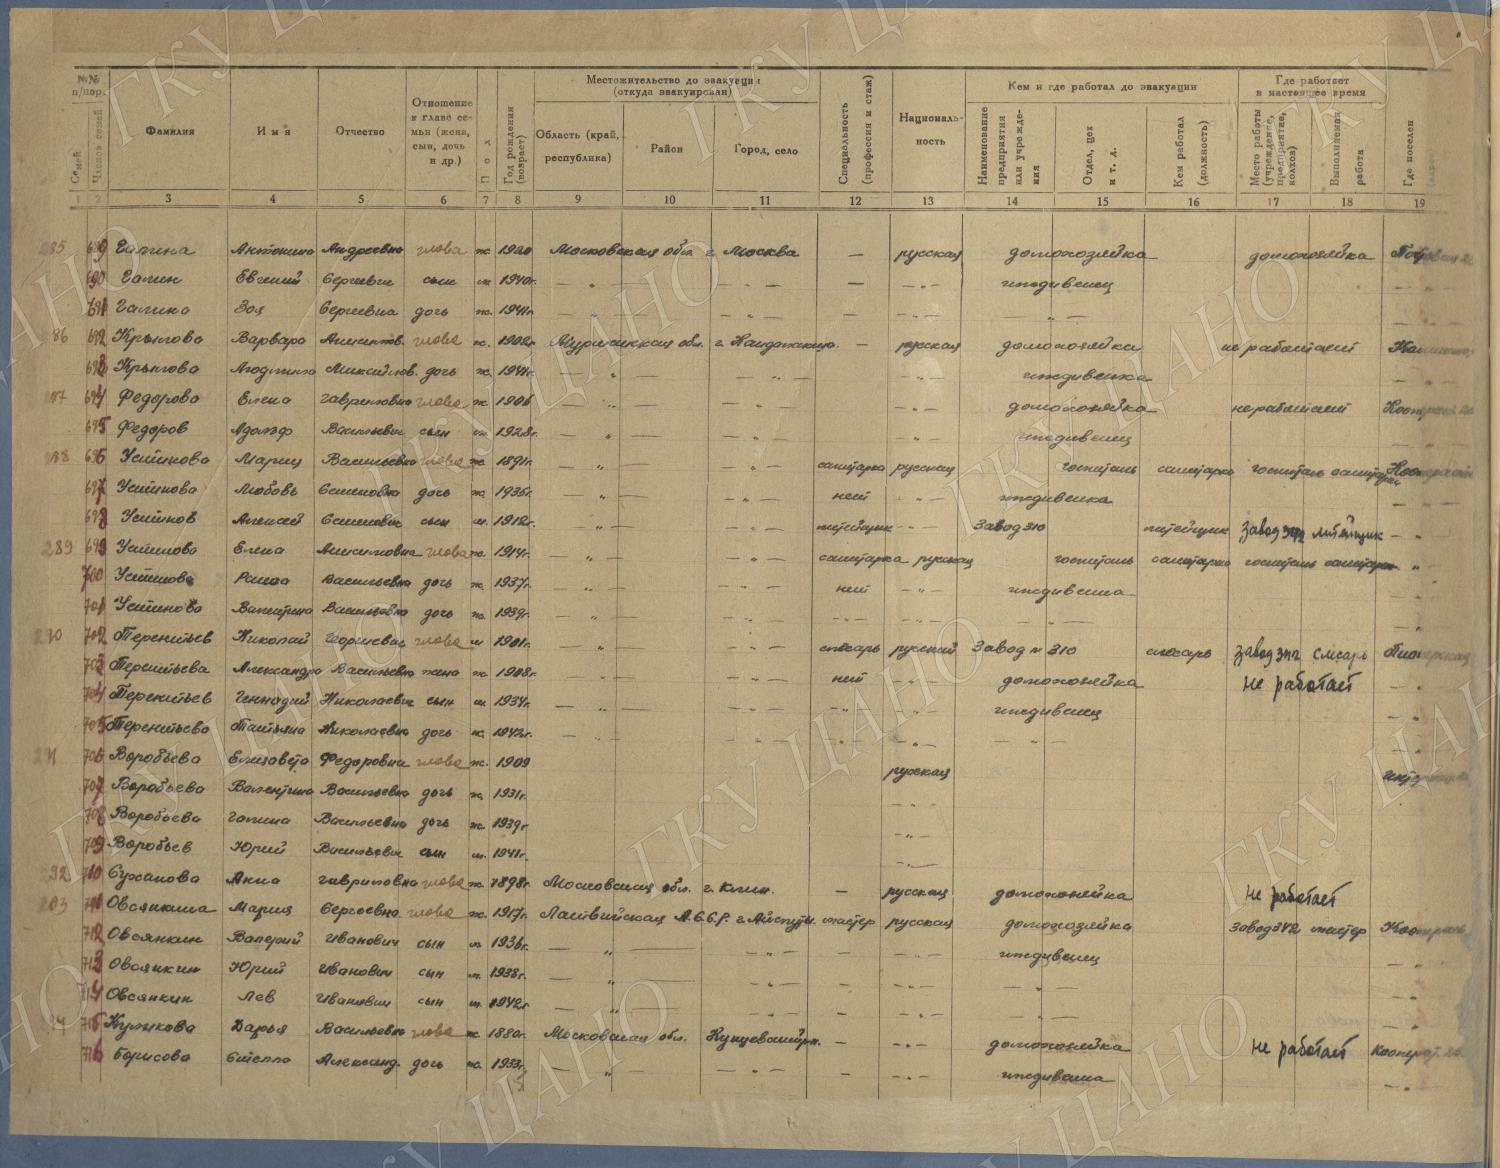 №№ п/пор.
Семей
Членов семей
Фамилия
Имя
Отчество
Отношение к главе семьи (жена, сын, дочь и др.)
Пол
Год рождения (возраст)
Местожительство до эвакуации (откуда эвакуирован)
Область (край, республика)
Район
Город, село
Специальность (профессия и стаж)
Национальность
Кем и где работал до эвакуации
Наименование предприятия или учреждения
Отдел, цех и т. д.
Кем работал (должность)
Где работает в настоящее время
Место работы (учреждение, предприятие, колхоз)
Выполняемая работа
Где поселен
1 2 3 4 5 6 7 8 9 10 11 12 13 14 15 16 17 18 19
285 689 Галина Антонина Андреевна глава ж. 1920 Московская обл. г. Москва — русская домохозяйка домохозяйка
690 Галин Евгений Сергеевич сын м. 1940г. — " — — " — — — " — иждивенец
691 Галина Зоя Сергеевна дочь ж. 1941г. — " — — " — — — " — — " —
286 692 Крылова Варвара глава ж. 1908г. Мурманская обл. г. Кандалакша — русская домохозяйка не работает
693 Крылова Людмила Михайлов. дочь ж. 1941г. — " — — " — — " — иждивенка
287 694 Федорова Елена Гавриловна глава ж. 1906 — " — — " — — " — домохозяйка не работает
695 Федоров Адольф Васильевич сын м. 1928г. — " — — " — — " — иждивенец
288 696 Устинова Мария Васильевна глава ж. 1891г. — " — — " — санитарка русская госпиталь санитарка госпиталь санитарка
697 Устинова Любовь Семеновна дочь ж. 1936г. — " — — " — нет — " — иждивенка
698 Устинов Алексей Семенович сын м. 1912г. — " — — " — литейщик — " — Завод 310 литейщик завод 342 литейщик — " —
289 699 Устинова Елена глава ж. 1914г. — " — — " — санитарка русская госпиталь санитарка госпиталь санитарка — " —
700 Устинова Раиса Васильевна дочь ж. 1937г. — " — — " — нет — " — иждивенка — " —
701 Устинова Валентина Васильевна дочь ж. 1939г. — " — — " — — " — — " — — " —
290 702 Терентьев Николай Георгиевич глава м. 1901г. — " — — " — слесарь русский Завод № 310 слесарь завод 342 слесарь Пионерская
703 Терентьева Александра Васильевна жена ж. 1908г. — " — — " — нет — " — домохозяйка не работает — " —
704 Терентьев Геннадий Николаевич сын м. 1934г. — " — — " — — " — — " — иждивенец — " —
705 Терентьева Татьяна Николаевна дочь ж. 1942г. — " — — " — — " — — " — — " — — " —
291 706 Воробьева Елизавета Федоровна глава ж. 1909 русская
707 Воробьева Валентина Васильевна дочь ж. 1931г. — " —
708 Воробьева Галина Васильевна дочь ж. 1939г. — " —
709 Воробьев Юрий Васильевич сын м. 1941г. — " —
292 710 Суханова Анна Гавриловна глава ж. 1898г. Московская обл. г. Клин. — русская домохозяйка не работает
293 711 Овсянкина Мария Сергеевна глава ж. 1917г. Латвийская А.С.С.Р. мастер русская домохозяйка завод 342 мастер
712 Овсянкин Валерий Иванович сын м. 1936г. — " — — " — — — " — иждивенец — " —
713 Овсянкин Юрий Иванович сын м. 1938г. — " — — " — — — " — — " — — " —
714 Овсянкин Лев Иванович сын м. 1942г. — " — — " — — — " — — " — — " —
294 715 Куликова Дарья Васильевна глава ж. 1880г. Московская обл. Кунцевский рн. — — " — домохозяйка не работает
716 Борисова Стелла Александ. дочь ж. 1933г. — " — — " — — — " — иждивенка — " —
ГКУ ЦАНО